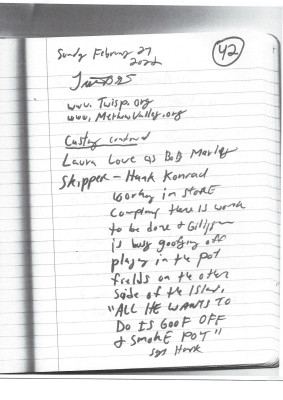 Sunday February 27
2022
42
www. Twisp.org
www. MethowValley.org
Casting continued
Laura Love as Bob Marley
Skipper - Hank Konrad
working in store
complains there is work
to be done & Gilligan
is busy goofing off
playing in the pot
fields on the other
side of the Island.
"ALL HE WANTS TO
DO IS GOOF OFF
& SMOKE POT"
says Hank